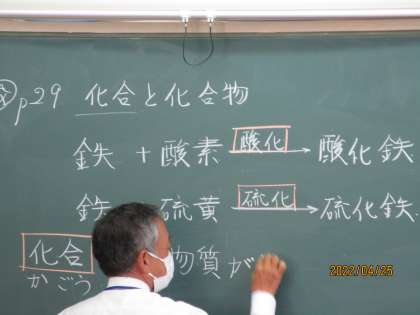 p29 化合と化合物
鉄 + 酸素 酸化→ 酸化鉄
鉄 硫黄 硫化→ 硫化鉄
化合 物質が
かごう
2022/04/25